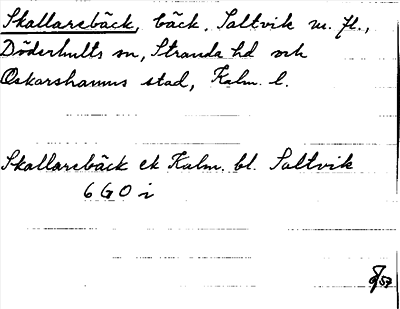 Skallarebäck, bäck, Saltvik m. fl.,
Döderhults sn, Stranda hd och
Oskarshamns stad, Kalm. l.
Skallarebäck ek Kalm. bl. Saltvik
6 G O i